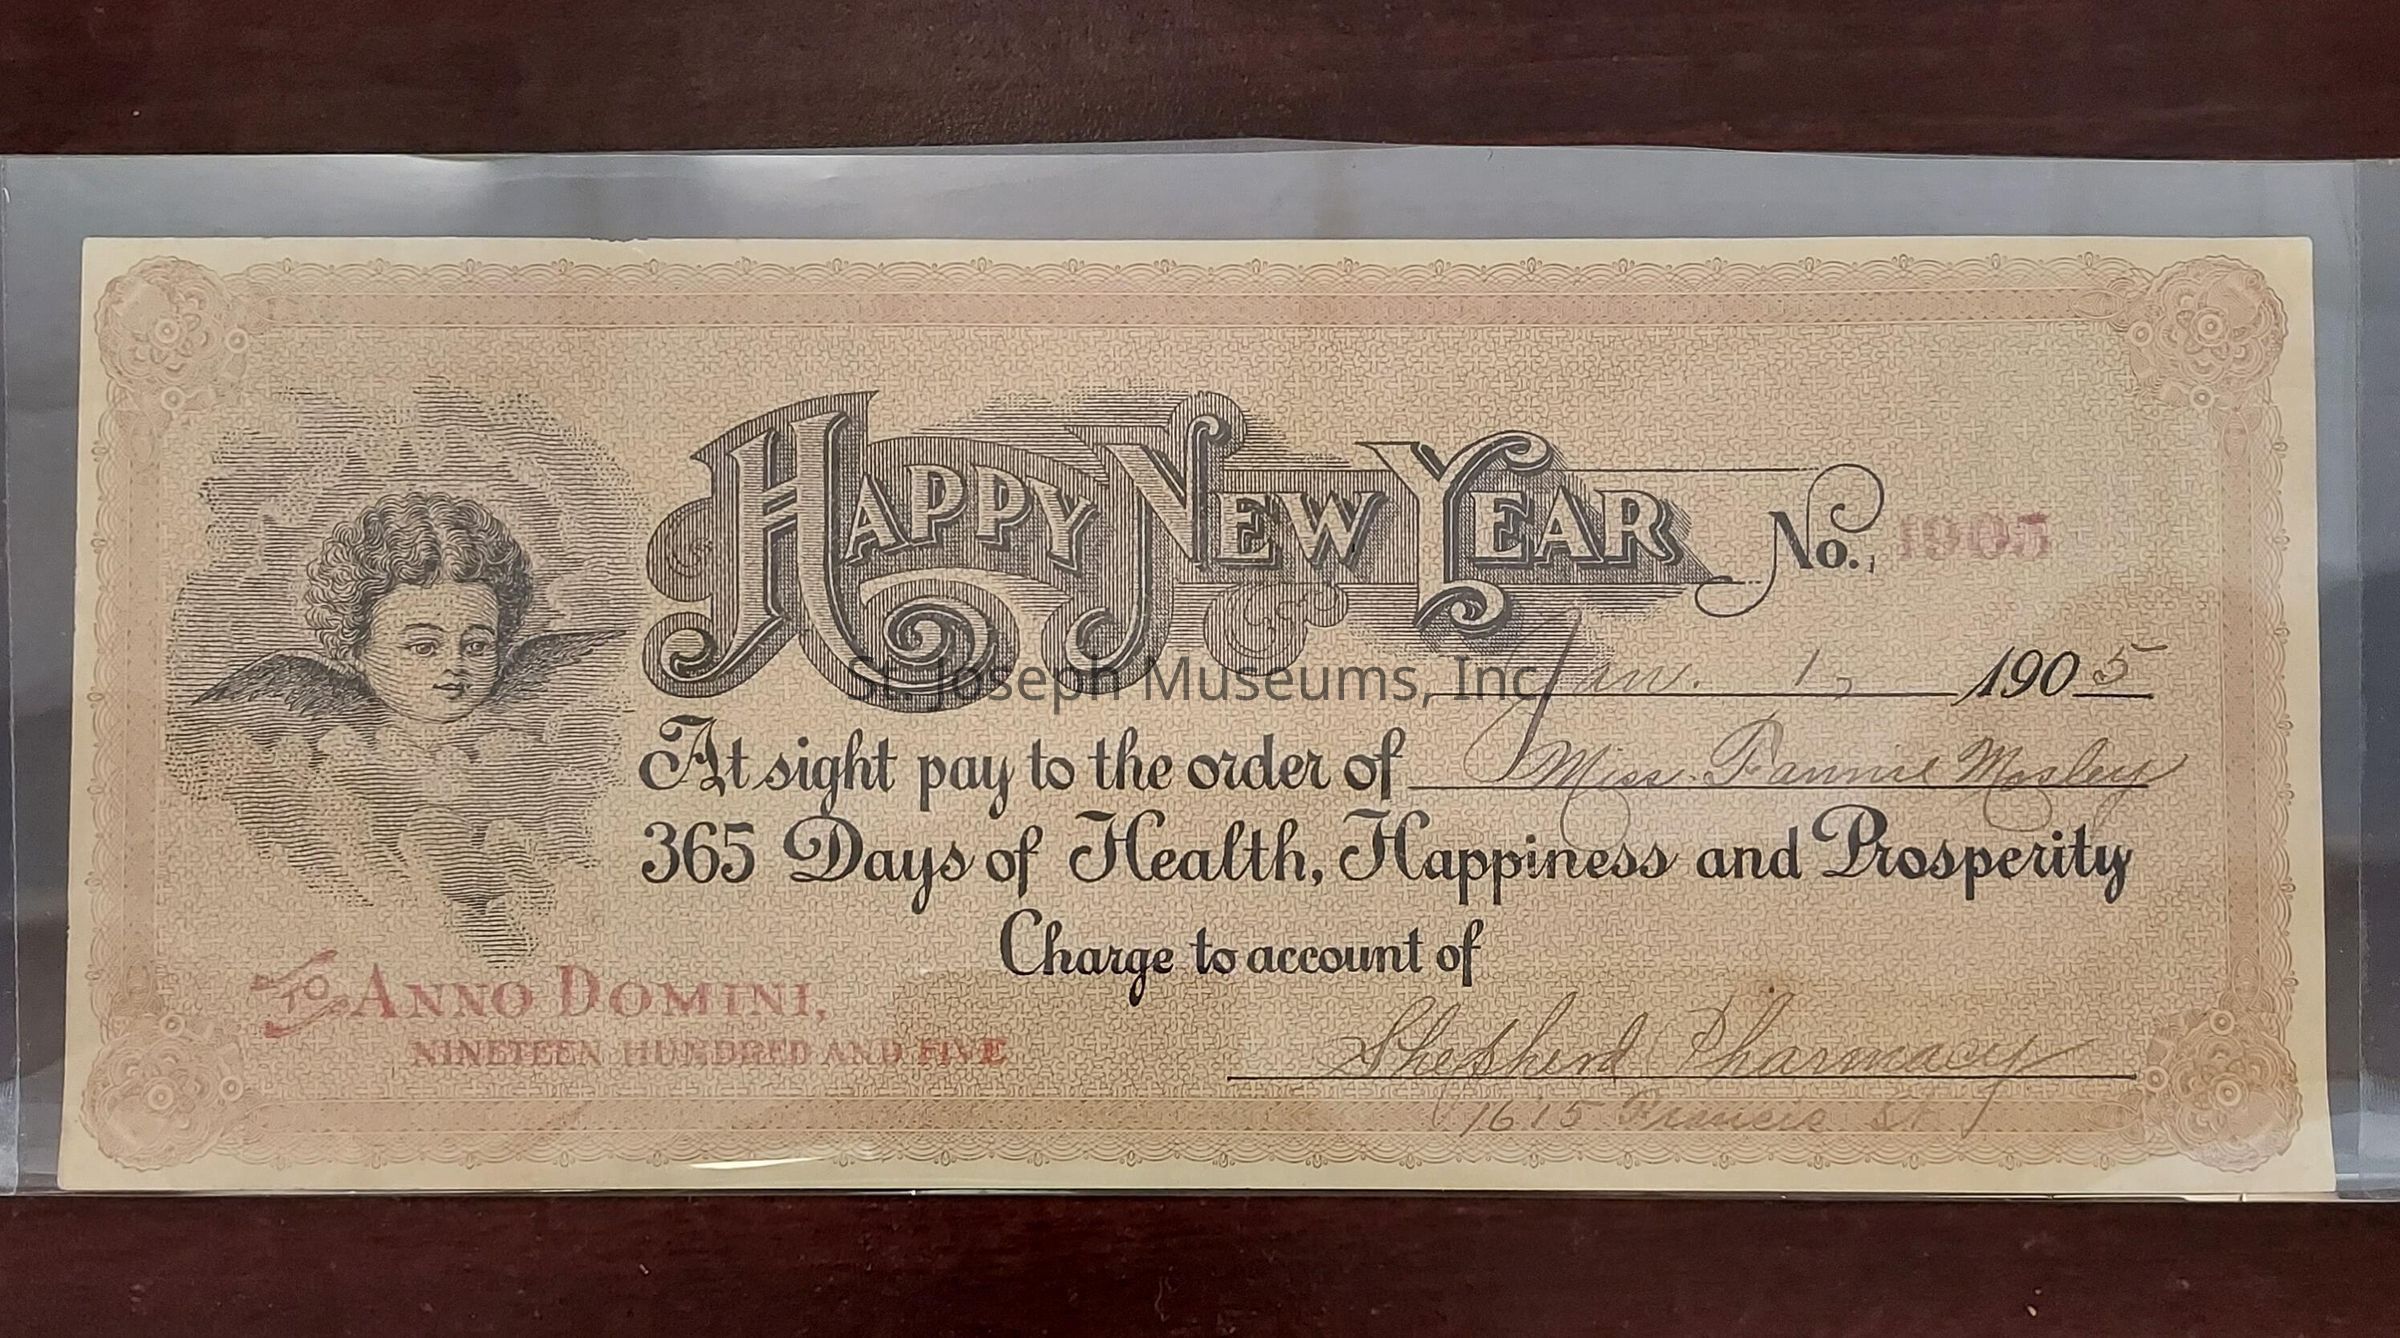 HAPPY NEW YEAR No. 1905
Jan. 1, 1905
At sight pay to the order of Miss. Fannie Mosley
365 Days of Health, Happiness and Prosperity
Charge to account of
Shepherd Pharmacy
1615 Francis St
TO ANNO DOMINI,
NINETEEN HUNDRED AND FIVE
St. Joseph Museums, Inc.